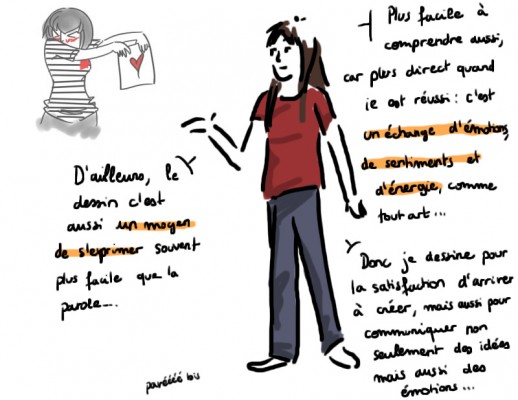 D'ailleurs, le
dessin c'est
aussi un moyen
de s'exprimer souvent
plus facile que la
parole...
Plus facile à
comprendre aussi,
car plus direct quand
ie est réussi : c'est
un échange d'émotions,
de sentiments et
d'énergie, comme
tout art...
Donc je dessine pour
la satisfaction d'arriver
à créer, mais aussi pour
communiquer non
seulement des idées
mais aussi des
émotions...